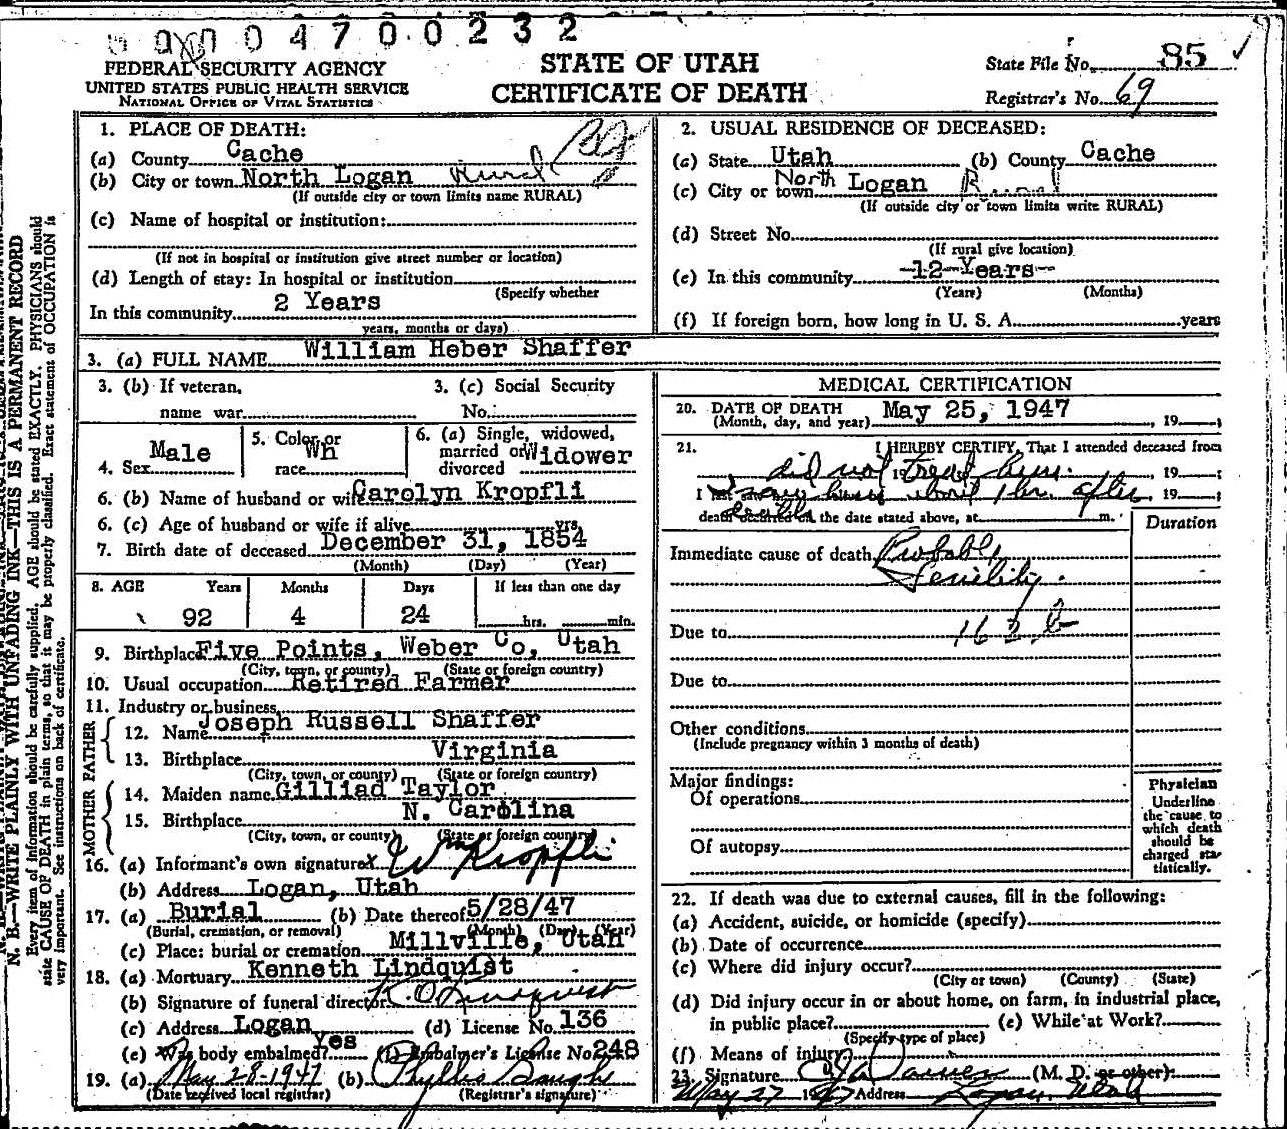 0000470 0232
FEDERAL SECURITY AGENCY
UNITED STATES PUBLIC HEALTH SERVICE
NATIONAL OFFICE OF VITAL STATISTICS
STATE OF UTAH
CERTIFICATE OF DEATH
State File No. 85
Registrar's No. 69
N. B.—WRITE PLAINLY WITH UNFADING INK—THIS IS A PERMANENT RECORD
Every item of information should be carefully supplied. AGE should be stated EXACTLY. PHYSICIANS should
state CAUSE OF DEATH in plain terms, so that it may be properly classified. Exact statement of OCCUPATION is
very important. See instructions on back of certificate.
1. PLACE OF DEATH:
(a) County Cache
(b) City or town North Logan Rural
(If outside city or town limits name RURAL)
(c) Name of hospital or institution:
(If not in hospital or institution give street number or location)
(d) Length of stay: In hospital or institution
(Specify whether
In this community 2 Years
years, months or days)
2. USUAL RESIDENCE OF DECEASED:
(a) State Utah (b) County Cache
(c) City or town North Logan Rural
(If outside city or town limits write RURAL)
(d) Street No.
(If rural give location)
(e) In this community -12-Years-
(Years) (Months)
(f) If foreign born, how long in U. S. A. years
3. (a) FULL NAME William Heber Shaffer
3. (b) If veteran,
name war
3. (c) Social Security
No.
4. Sex Male
5. Color or
race Wh
6. (a) Single, widowed,
married or
divorced Widower
6. (b) Name of husband or wife Carolyn Kropfli
6. (c) Age of husband or wife if alive yrs.
7. Birth date of deceased December 31, 1854
(Month) (Day) (Year)
8. AGE Years Months Days If less than one day
92 4 24 hrs. min.
9. Birthplace Five Points, Weber Co, Utah
(City, town, or county) (State or foreign country)
10. Usual occupation Retired Farmer
11. Industry or business
FATHER
12. Name Joseph Russell Shaffer
13. Birthplace Virginia
(City, town, or county) (State or foreign country)
MOTHER
14. Maiden name Gilliad Taylor
15. Birthplace N. Carolina
(City, town, or county) (State or foreign country)
16. (a) Informant's own signature x Wm Kropfli
(b) Address Logan, Utah
17. (a) Burial (b) Date thereof 5/28/47
(Burial, cremation, or removal) (Month) (Day) (Year)
(c) Place: burial or cremation Millville, Utah
18. (a) Mortuary Kenneth Lindquist
(b) Signature of funeral director K O Lindquist
(c) Address Logan (d) License No. 136
(e) Was body embalmed? Yes (f) Embalmer's License No. 248
19. (a) May 28-1947 (b) Phyllis
(Date received local registrar) (Registrar's signature)
MEDICAL CERTIFICATION
20. DATE OF DEATH May 25, 1947, 19
(Month, day, and year)
21. I HEREBY CERTIFY, That I attended deceased from
did not treat him. 19 , 19 ;
I saw him about 1 hr. after , 19 ;
death occurred on the date stated above, at m.
Duration
Immediate cause of death Probably
Senility.
Due to 162 b
Due to
Other conditions
(Include pregnancy within 3 months of death)
Major findings:
Of operations
Of autopsy
Physician
Underline
the cause to
which death
should be
charged sta-
tistically.
22. If death was due to external causes, fill in the following:
(a) Accident, suicide, or homicide (specify)
(b) Date of occurrence
(c) Where did injury occur?
(City or town) (County) (State)
(d) Did injury occur in or about home, on farm, in industrial place,
in public place? (e) While at Work?
(Specify type of place)
(f) Means of injury
23. Signature (M. D. or other)
May 27 1947 Address Logan, Utah